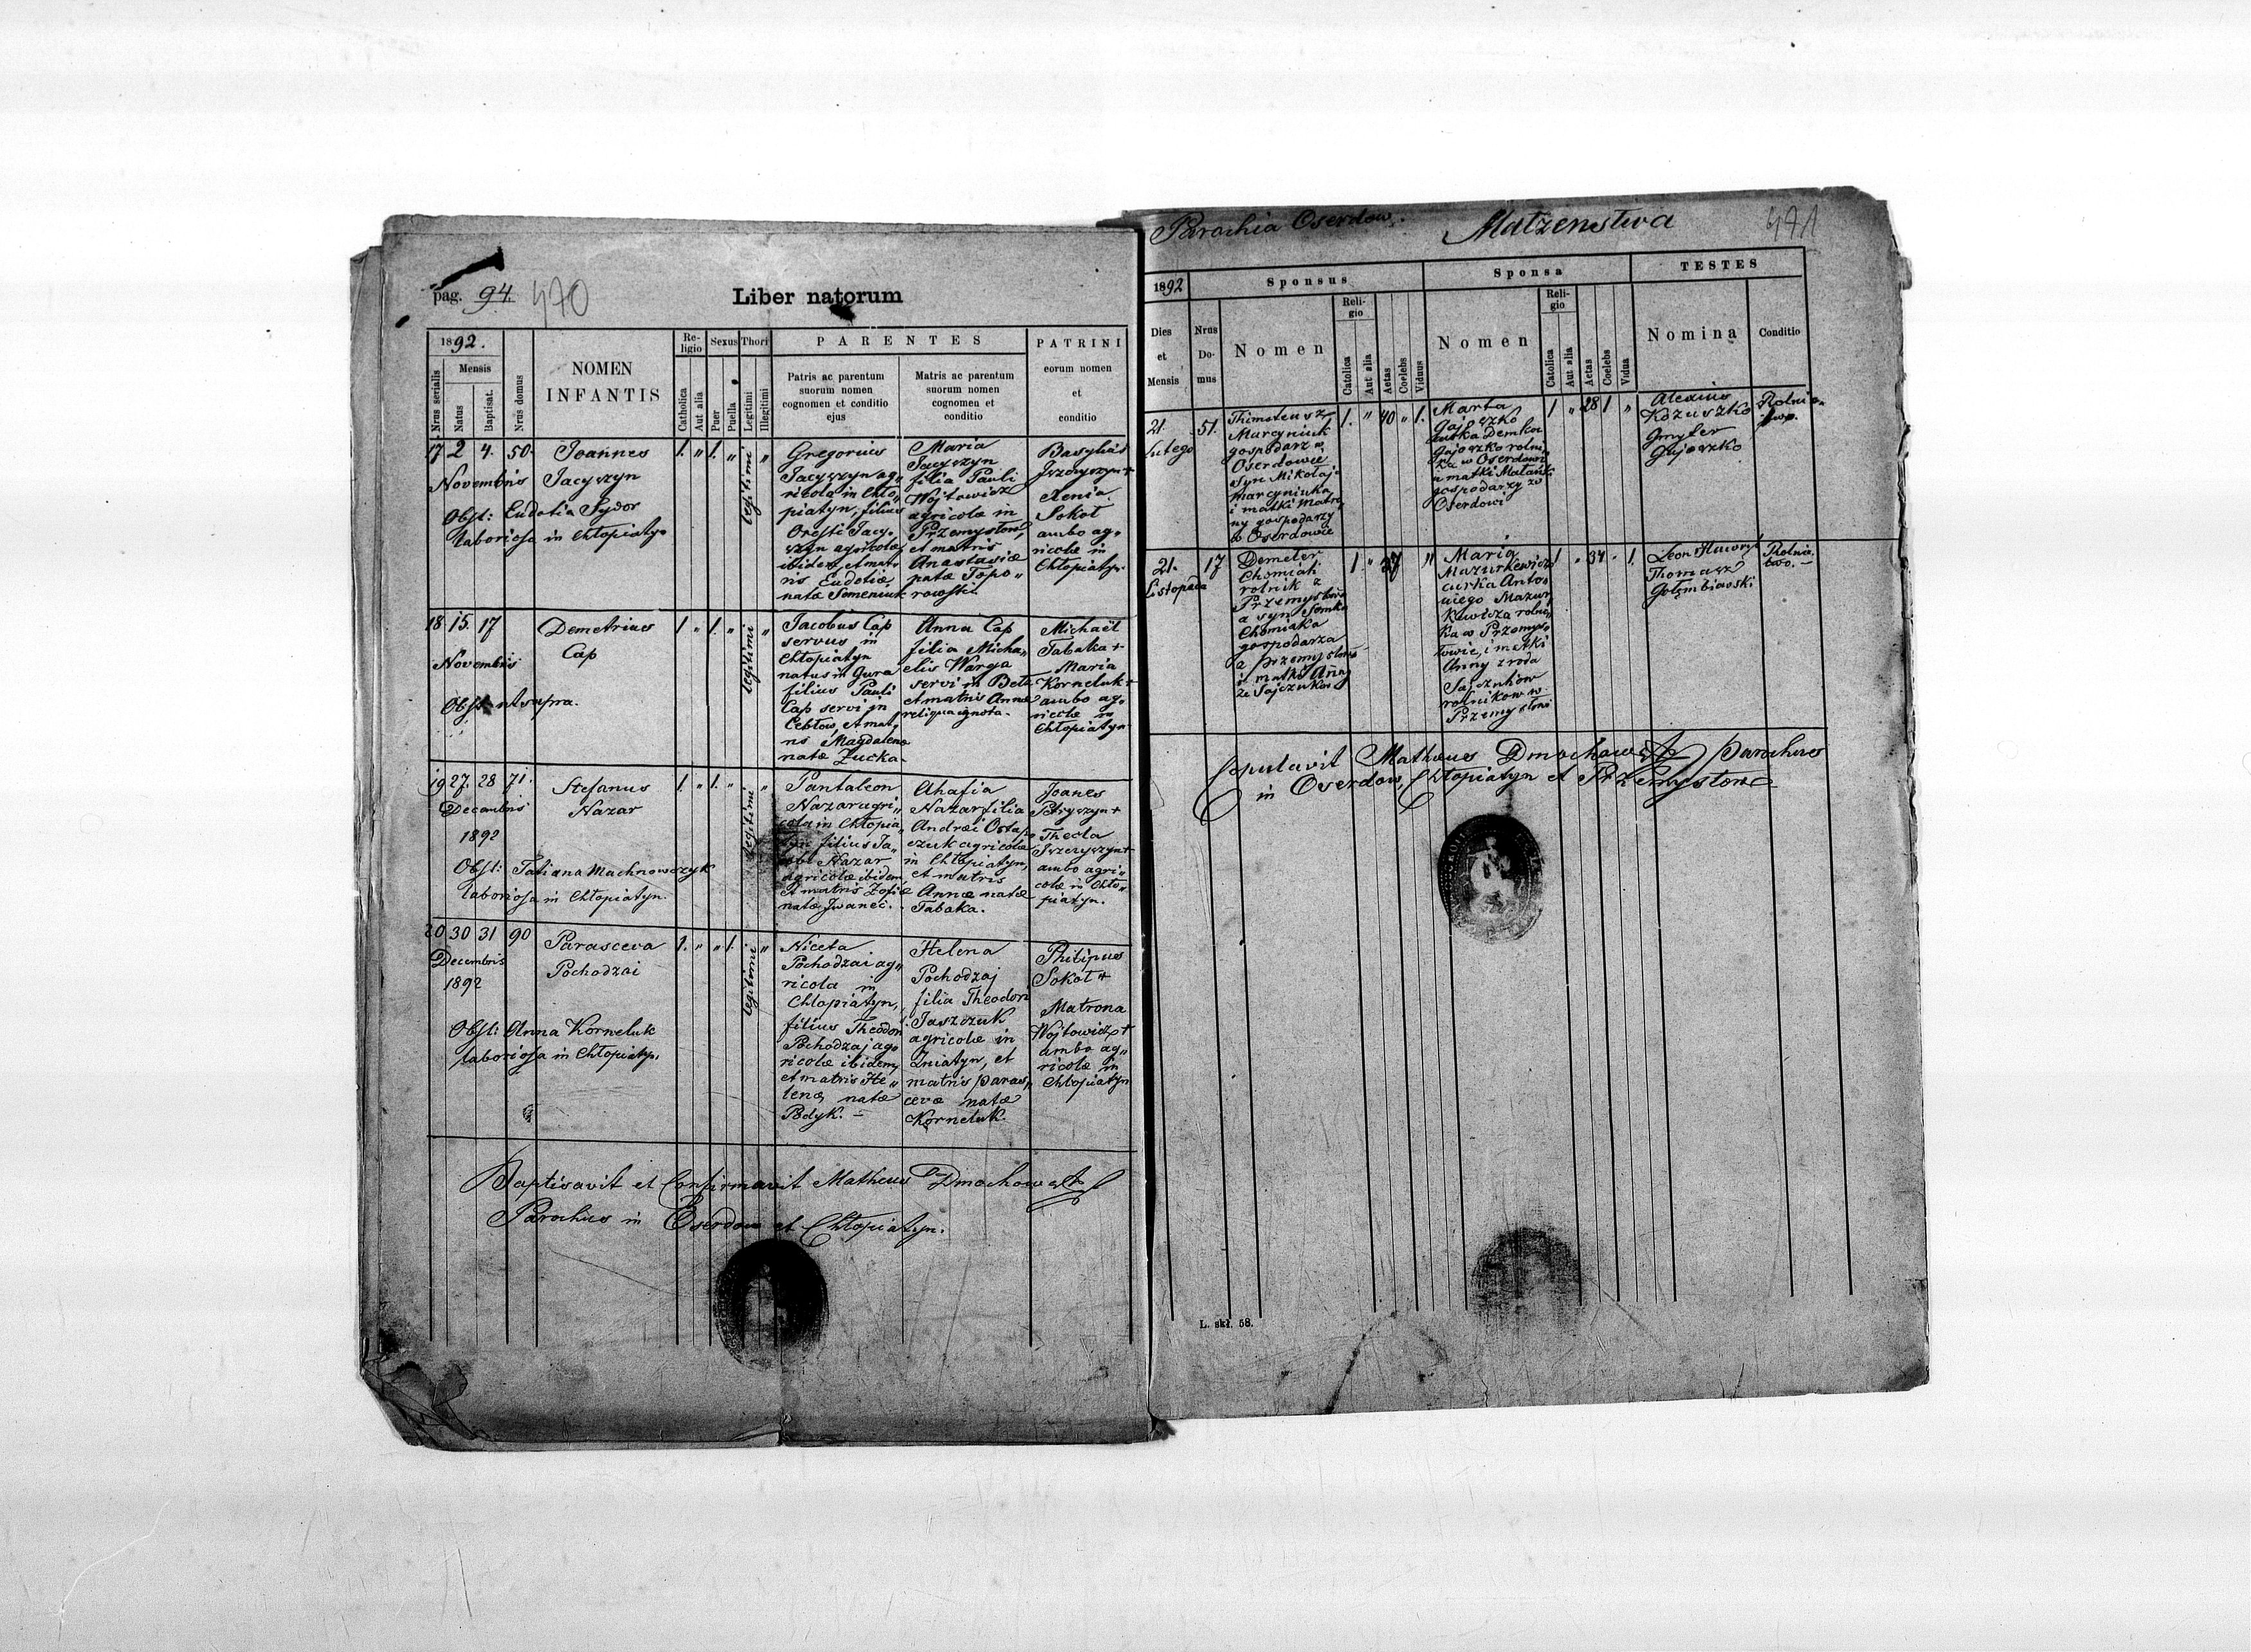 pag. 94. 470
Liber natorum
1892.
Mensis
Nrus serialis
Natus
Baptisat.
Nrus domus
NOMEN
INFANTIS
Re-
ligio
Catholica
Aut alia
Sexus
Puer
Puella
Thori
Legitimi
Illegitimi
PARENTES
Patris ac parentum
suorum nomen
cognomen et conditio
ejus
Matris ac parentum
suorum nomen
cognomen et
conditio
PATRINI
eorum nomen
et
conditio
17 2 4. 50.
Novembris
Joannes
Jacyszyn
Obst: Eudotia Sydor
laboriosa in Chłopiatyn
1. " 1. " legitimi "
Gregorius
Jacyszyn ag„
ricola in Chło„
piatyn, filius
Oresti Jacy„
szyn agricolæ
ibidem, et mat„
ris Eudotiæ
natæ Semeniuk
Maria
Jacyszyn
filia Pauli
Wojtowicz
agricolæ in
Przemysłow,
et matris
Anastasiæ
natæ Topo„
rowski.
Basylius
Jszczyszyn +
Xenia
Sokoł
ambo ag„
ricolæ in
Chłopiatyn
18 15. 17
Novembris
Demetrius
Cap
Obst: ut supra.
1. " 1. " legitimi "
Jacobus Cap
servus in
Chłopiatyn
natus in Gura
filius Pauli
Cap servi in
Cebłow, et mat„
ris Magdalenæ
natæ Zucka.
Anna Cap
filia Micha„
elis Warga
servi in Bełz
et matris Annæ
reliqua ignota.
Michaël
Tabaka +
Maria
Korneluk +
ambo ag„
ricolæ in
Chłopiatyn
19 27. 28 71.
Decembris
1892
Stefanus
Nazar
Obst: Tatiana Machnowczyk
laboriosa in Chłopiatyn.
1. " 1. " legitimi "
Pantaleon
Nazar agri„
cola in Chłopia„
tyn filius Ja„
cobi Nazar
agricolæ ibidem,
et matris Zofiæ
natæ Jwaneć.
Ahafia
Nazar filia
Andrei Ostap„
czuk agricolæ
in Chłopiatyn,
et matris
Annæ natæ
Tabaka.
Joanes
Bryszyn +
Thecla
Jszczyszyn +
ambo agri„
colæ in Chło„
piatyn.
20 30 31 90
Decembris
1892
Parasceva
Pochodzai
Obst: Anna Korneluk
laboriosa in Chłopiatyn,
1. " " 1. legitimi "
Niceta
Pochodzai ag„
ricola in
Chłopiatyn,
filius Theodori
Pochodzaj ag„
ricolæ ibidem,
et matris He„
lenæ natæ
Bdyk. –
Helena
Pochodzaj
filia Theodori
Jaszczuk
agricolæ in
Zniatyn, et
matris Paras„
cevæ natæ
Korneluk.
Philipus
Sokoł +
Matrona
Wojtowicz +
ambo ag„
ricolæ in
Chłopiatyn
Baptisavit et Confirmavit Matheus Dmochowski
Parochus in Oserdow et Chłopiatyn.
Parochia Oserdow.
Małzenstwa
471
1892
Dies
et
Mensis
Nrus
Do-
mus
Sponsus
Nomen
Reli-
gio
Catolica
Aut alia
Aetas
Coelebs
Viduus
Sponsa
Nomen
Reli-
gio
Catolica
Aut alia
Aetas
Coelebs
Vidua
TESTES
Nomina
Conditio
21.
Lutego
51.
Thimoteusz
Marcyniuk
gospodarz w
Oserdowie
syn Mikołaja
Marcyniuka
i matki Matro
ny gospodarzy
w Oserdowie
1. " 40 " 1.
Marta
Gajoszko
curka Demka
Gajoszko rolni„
ka w Oserdowi
a matki Małanki
gospodarzy w
Oserdowi
1 " 28 1 "
Alexius
Kożuszko
Gmyter
Gajoszko
21.
Listopada
17
Demeter
Chomiak
rolnik z
Przemysłow
a syn Semka
Chomiaka
gospodarza
z Przemysłow
i matki Anny
ze Sajczukow
1 " 37 "
Maria
Mazurkewicz
curka Anto„
niego Mazur„
kewicza rolni„
ka w Przemys„
łowie, i matki
Anny z roda
Sajczukow
rolnikow w
Przemysłowi
1 " 34 " 1.
Thomasz
Gołembiowski
Rolnic„
two. –
Copulavit Matheus Dmochowski Parochus
in Oserdow, Chłopiatyn et Przemysłow
L. skł. 58.